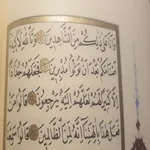 وَأَنَا عَلَىٰ ذَٰلِكُمْ مِنَ الشَّاهِدِينَ وَتَاللَّهِ لَأَكِيدَنَّ
أَصْنَامَكُمْ بَعْدَ أَنْ تُوَلُّوا مُدْبِرِينَ فَجَعَلَهُمْ جُذَاذًا
إِلَّا كَبِيرًا لَهُمْ لَعَلَّهُمْ إِلَيْهِ يَرْجِعُونَ قَالُوا مَنْ
فَعَلَ هَٰذَا بِآلِهَتِنَا إِنَّهُ لَمِنَ الظَّالِمِينَ قَالُوا